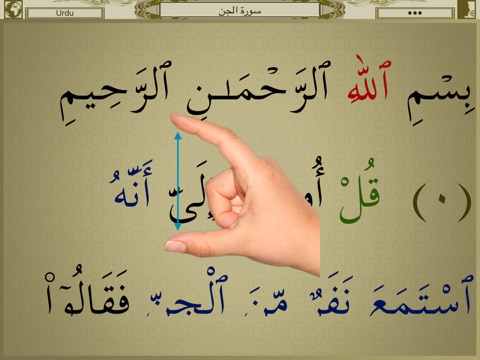 Urdu
سورة الجن
•••
بِسْمِ ٱللَّهِ ٱلرَّحْمَـٰنِ ٱلرَّحِيمِ
(٠) قُلْ إِلَىَّ أَنَّهُ
ٱسْتَمَعَ نَفَرٌ مِّنَ ٱلْجِنِّ فَقَالُوٓا۟